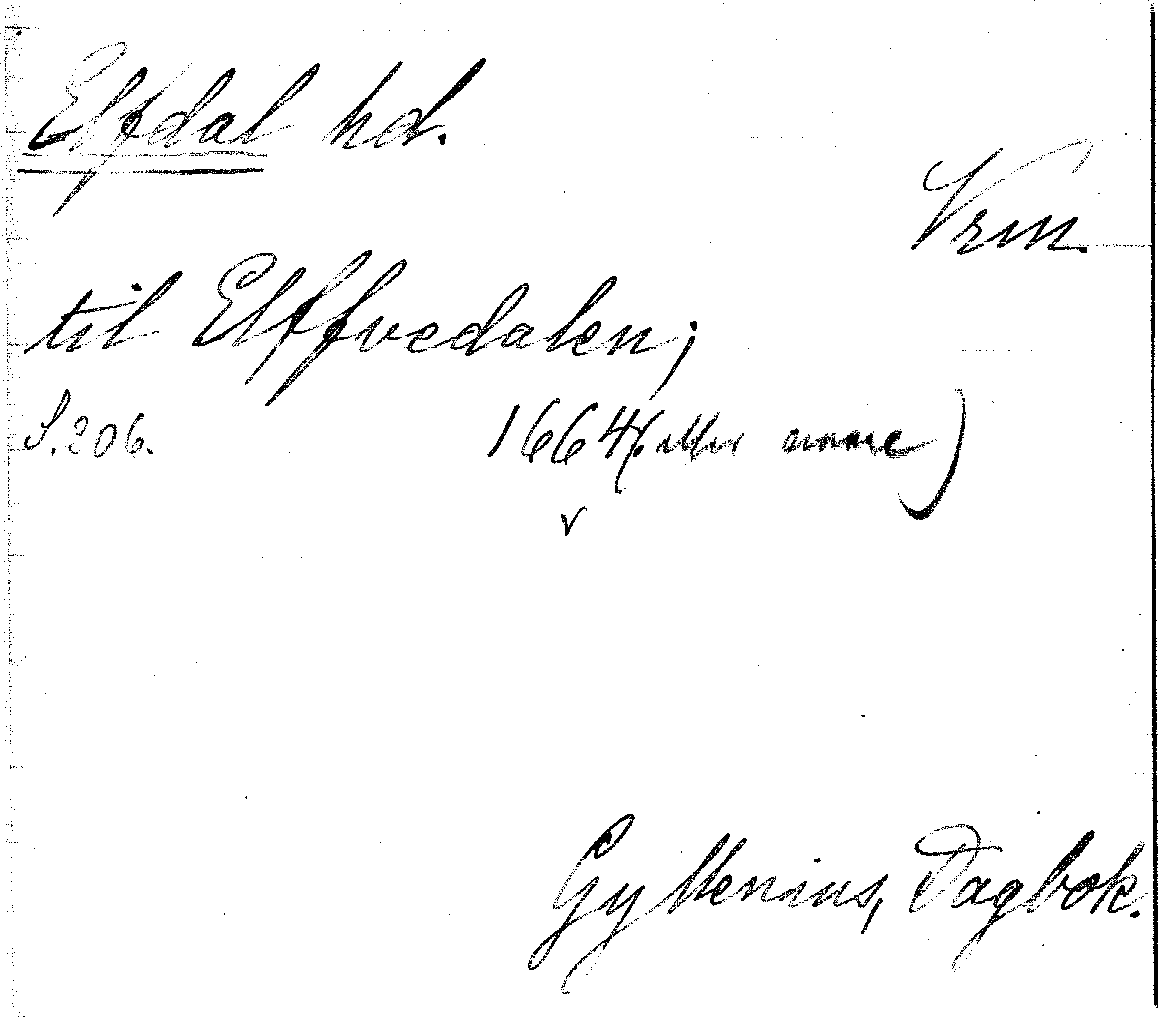 Elfdal hd.
Vrm.
til Elffvedalen;
S. 206. 1664
v
Gyllenius, Dagbok.